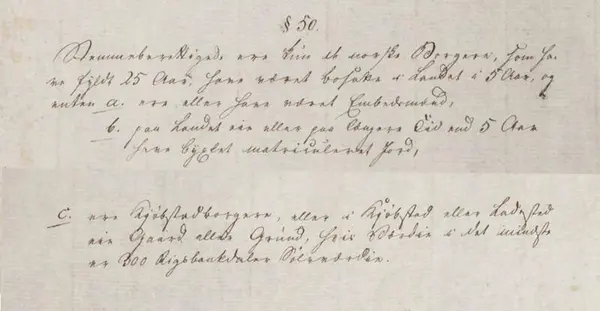 § 50.
Stemmeberettigede ere kun de norske Borgere, som ha-
ve fyldt 25 Aar, have været bosatte i Landet i 5 Aar, og
enten a. ere eller have været Embedsmænd,
b. paa Landet eie eller paa længere Tid end 5 Aar
have byxlet matriculeret Jord,
c. ere Kjøbstadborgere, eller i Kjøbstad eller Ladested
eie Gaard eller Grund, hvis Værdie i det mindste
er 300 Rigsbankdaler Sølvværdie.